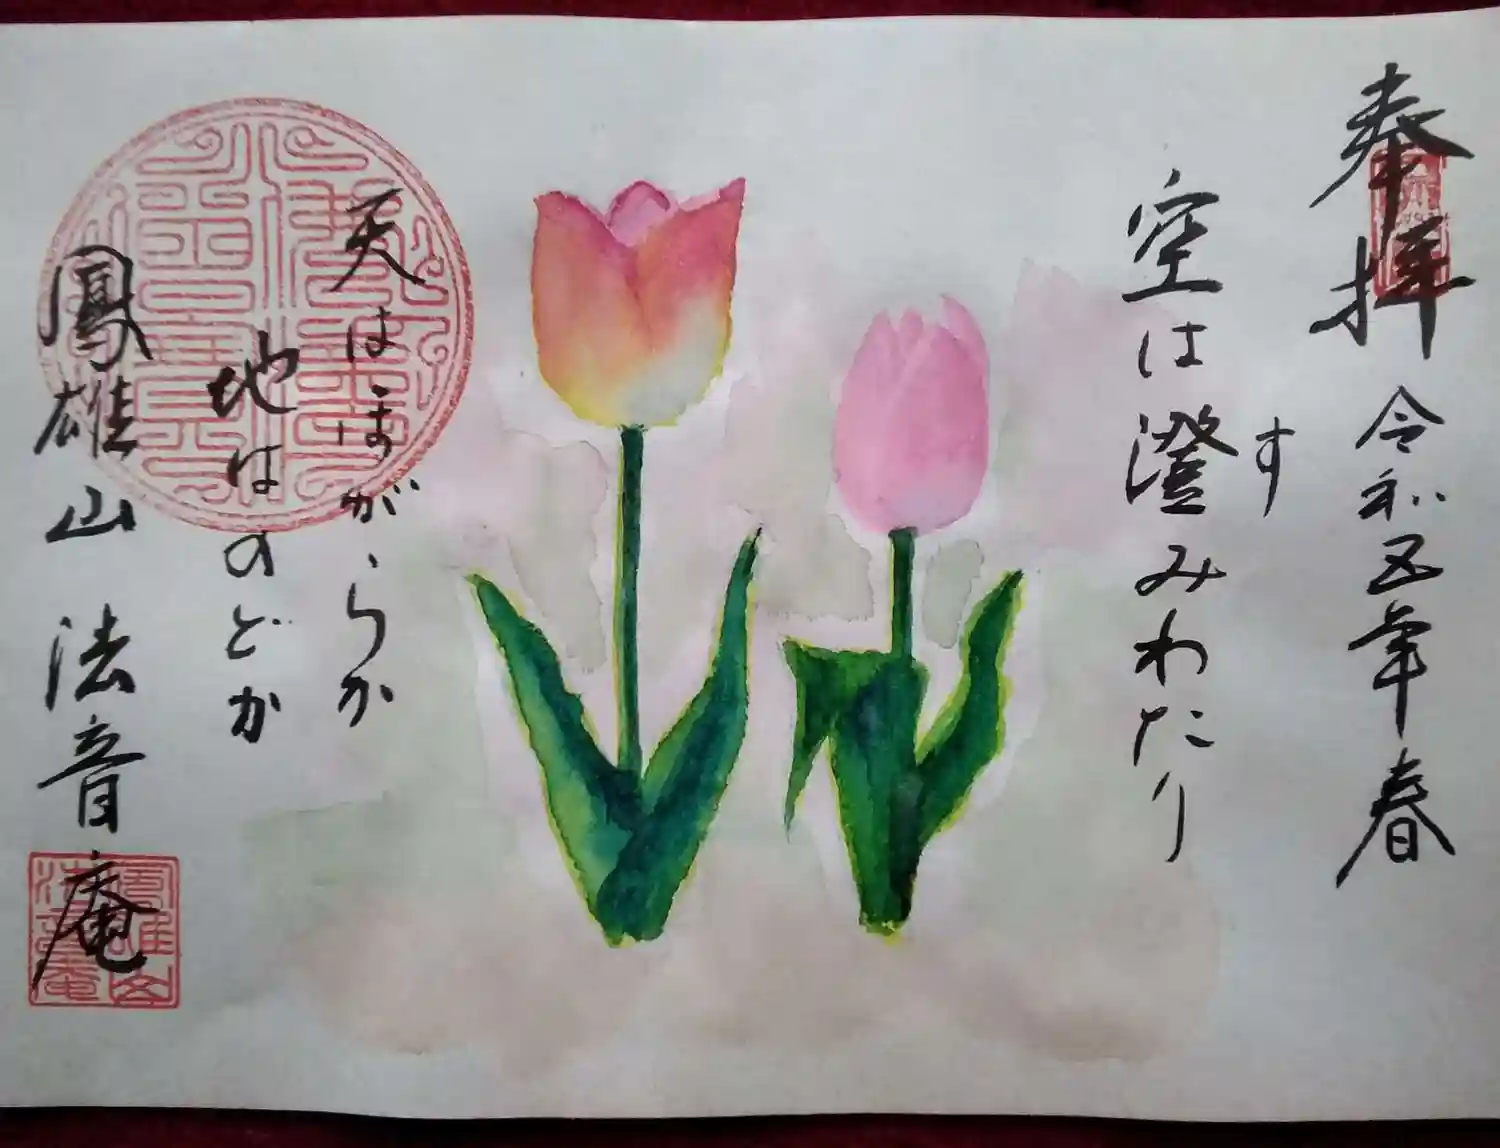 奉拝 令和五年春
す
空は澄みわたり
天はほがらか
地はのどか
鳳雄山 法音庵